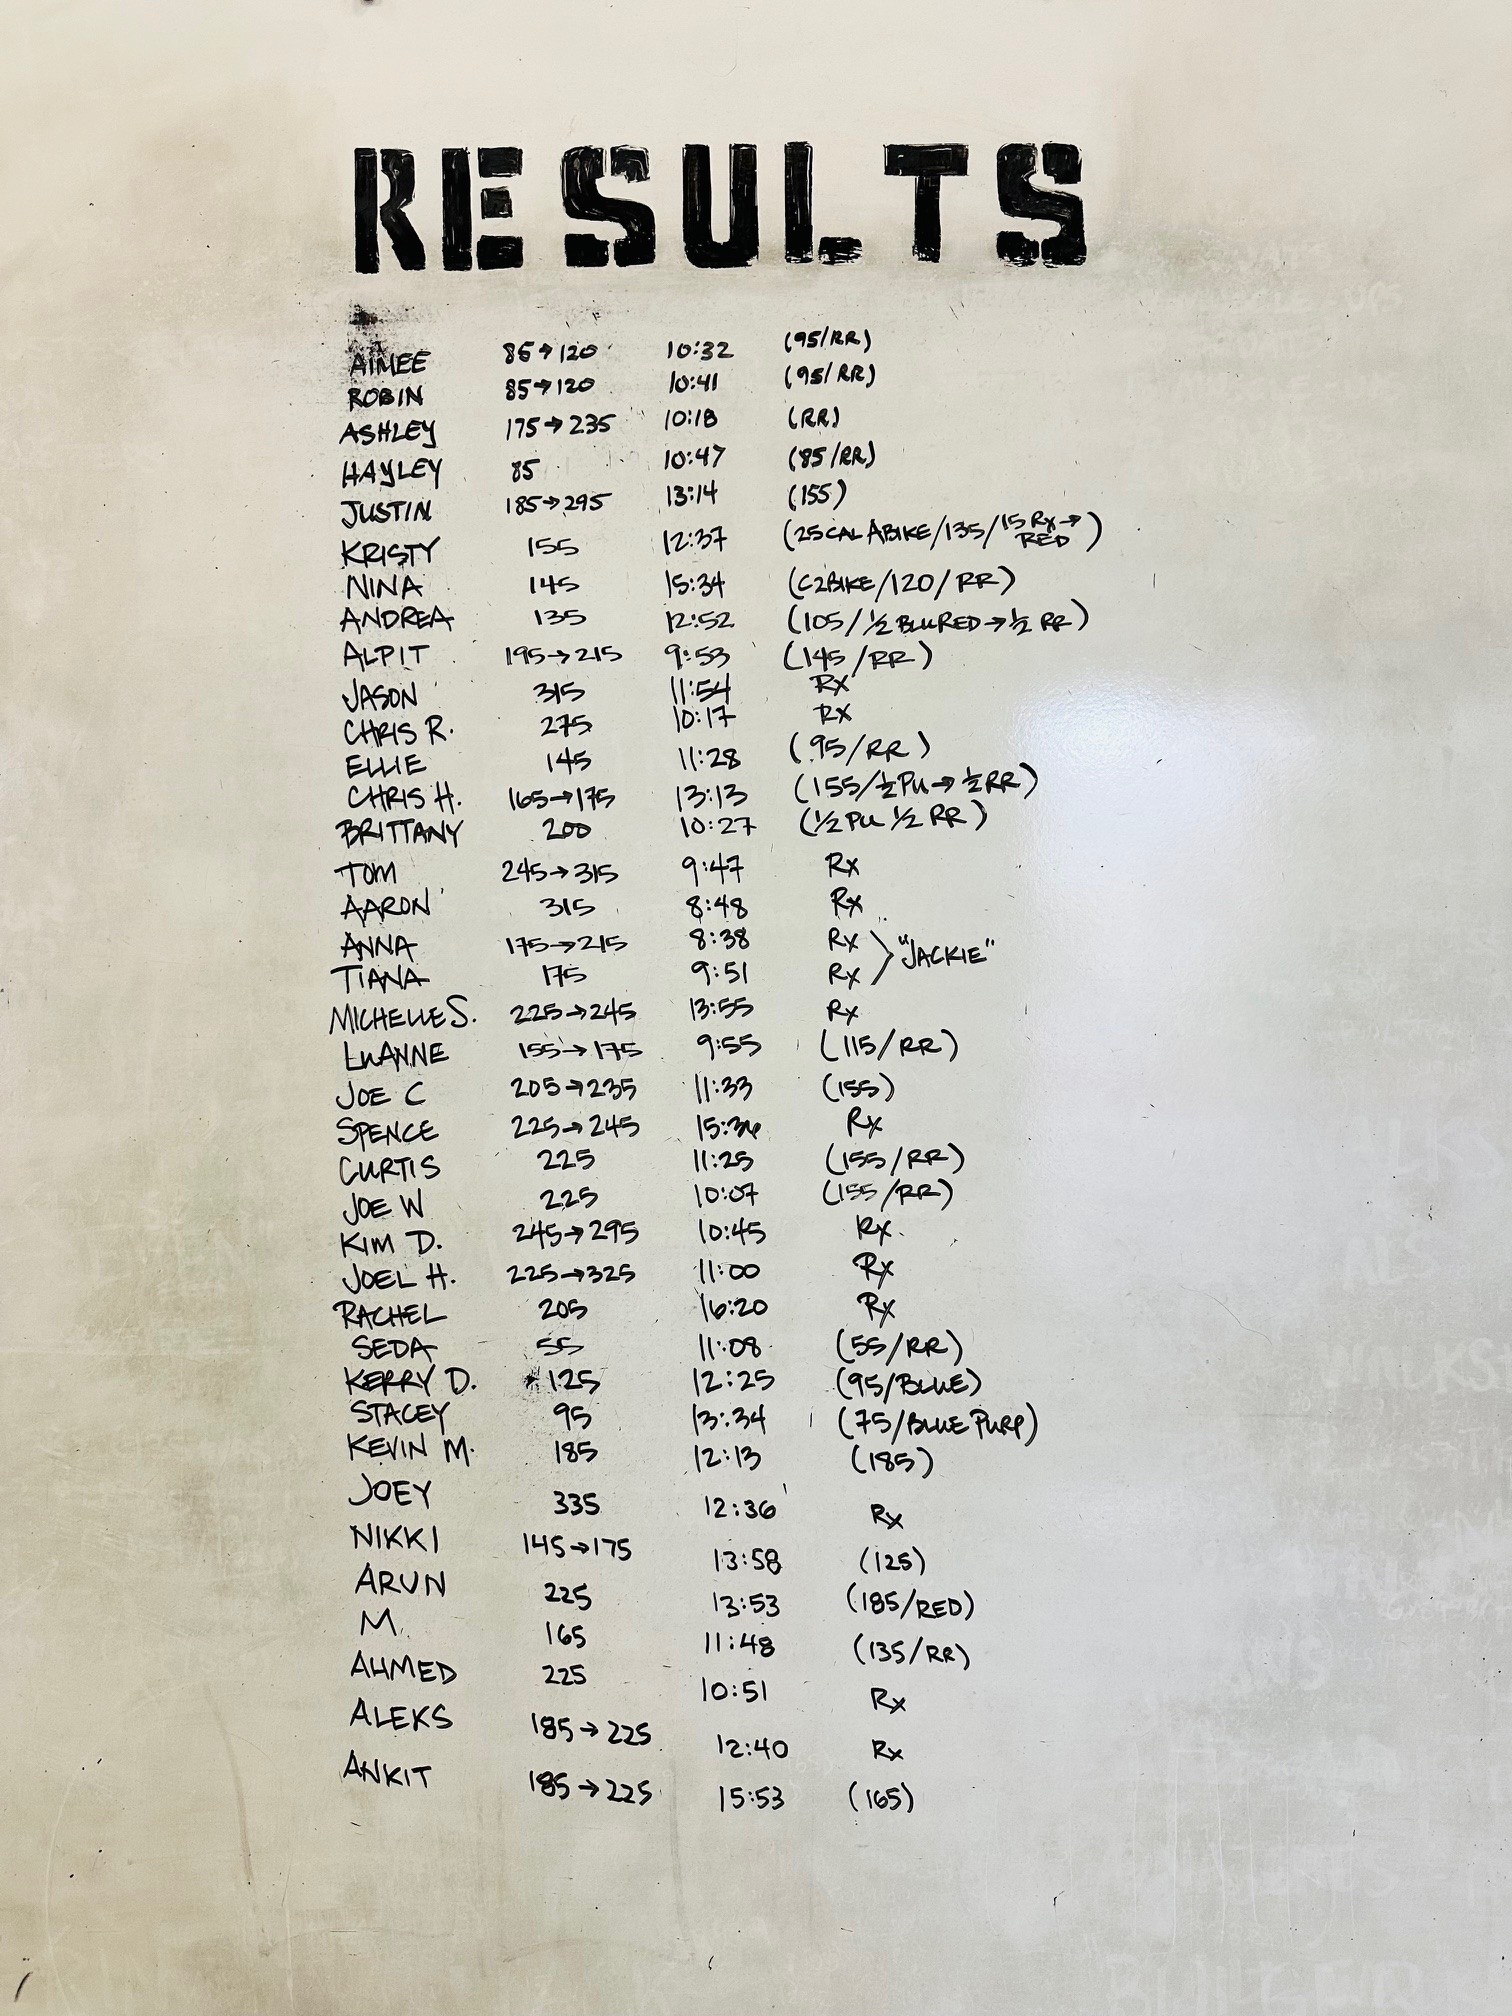 RESULTS
AIMEE 85→120 10:32 (95/RR)
ROBIN 85→120 10:41 (95/RR)
ASHLEY 175→235 10:18 (RR)
HAYLEY 85 10:47 (85/RR)
JUSTIN 185→295 13:14 (155)
KRISTY 155 12:37 (25CAL ABIKE/135/15 RX→RED)
NINA 145 15:34 (C2BIKE/120/RR)
ANDREA 135 12:52 (105/½ BLURED→½ RR)
ALPIT 195→215 9:53 (145/RR)
JASON 315 11:54 RX
CHRIS R. 275 10:17 RX
ELLIE 145 11:28 (95/RR)
CHRIS H. 165→175 13:13 (155/½PU→½RR)
BRITTANY 200 10:27 (½PU ½ RR)
TOM 245→315 9:47 RX
AARON 315 8:48 RX
ANNA 175→215 8:38 RX
TIANA 175 9:51 RX "JACKIE"
MICHELLE S. 225→245 13:55 RX
LUANNE 155→175 9:55 (115/RR)
JOE C 205→235 11:33 (155)
SPENCE 225→245 RX
CURTIS 225 11:25 (155/RR)
JOE W 225 10:07 (155/RR)
KIM D. 245→295 10:45 RX.
JOEL H. 225→325 11:00 RX
RACHEL 205 16:20 RX
SEDA 55 11:08 (55/RR)
KERRY D. 125 12:25 (95/BLUE)
STACEY 95 13:34 (75/BLUE PURP)
KEVIN M. 185 12:13 (185)
JOEY 335 12:36 RX
NIKKI 145→175 13:58 (125)
ARUN 225 13:53 (185/RED)
M. 165 11:48 (135/RR)
AHMED 225 10:51 RX
ALEKS 185→225 12:40 RX
ANKIT 185→225 15:53 (165)